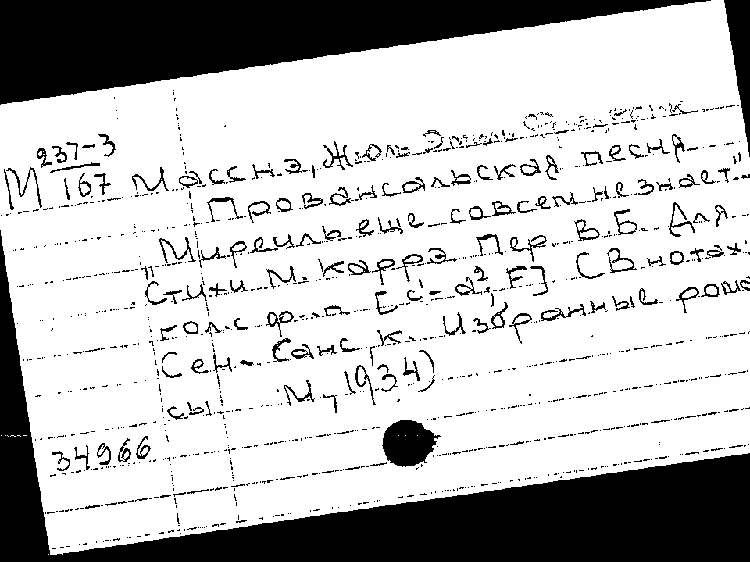 М 237-3
167 Массне, Жюль Эмиль Фредерик
Провансальская песня
„Миреиль еще совсем не знает".
Стихи М. Каррэ Пер. В.Б. Для
гол. с ф.-п [c¹-a², F]. (В нотах:
Сен-Санс, К. Избранные рома
сы М, 1934)
34966